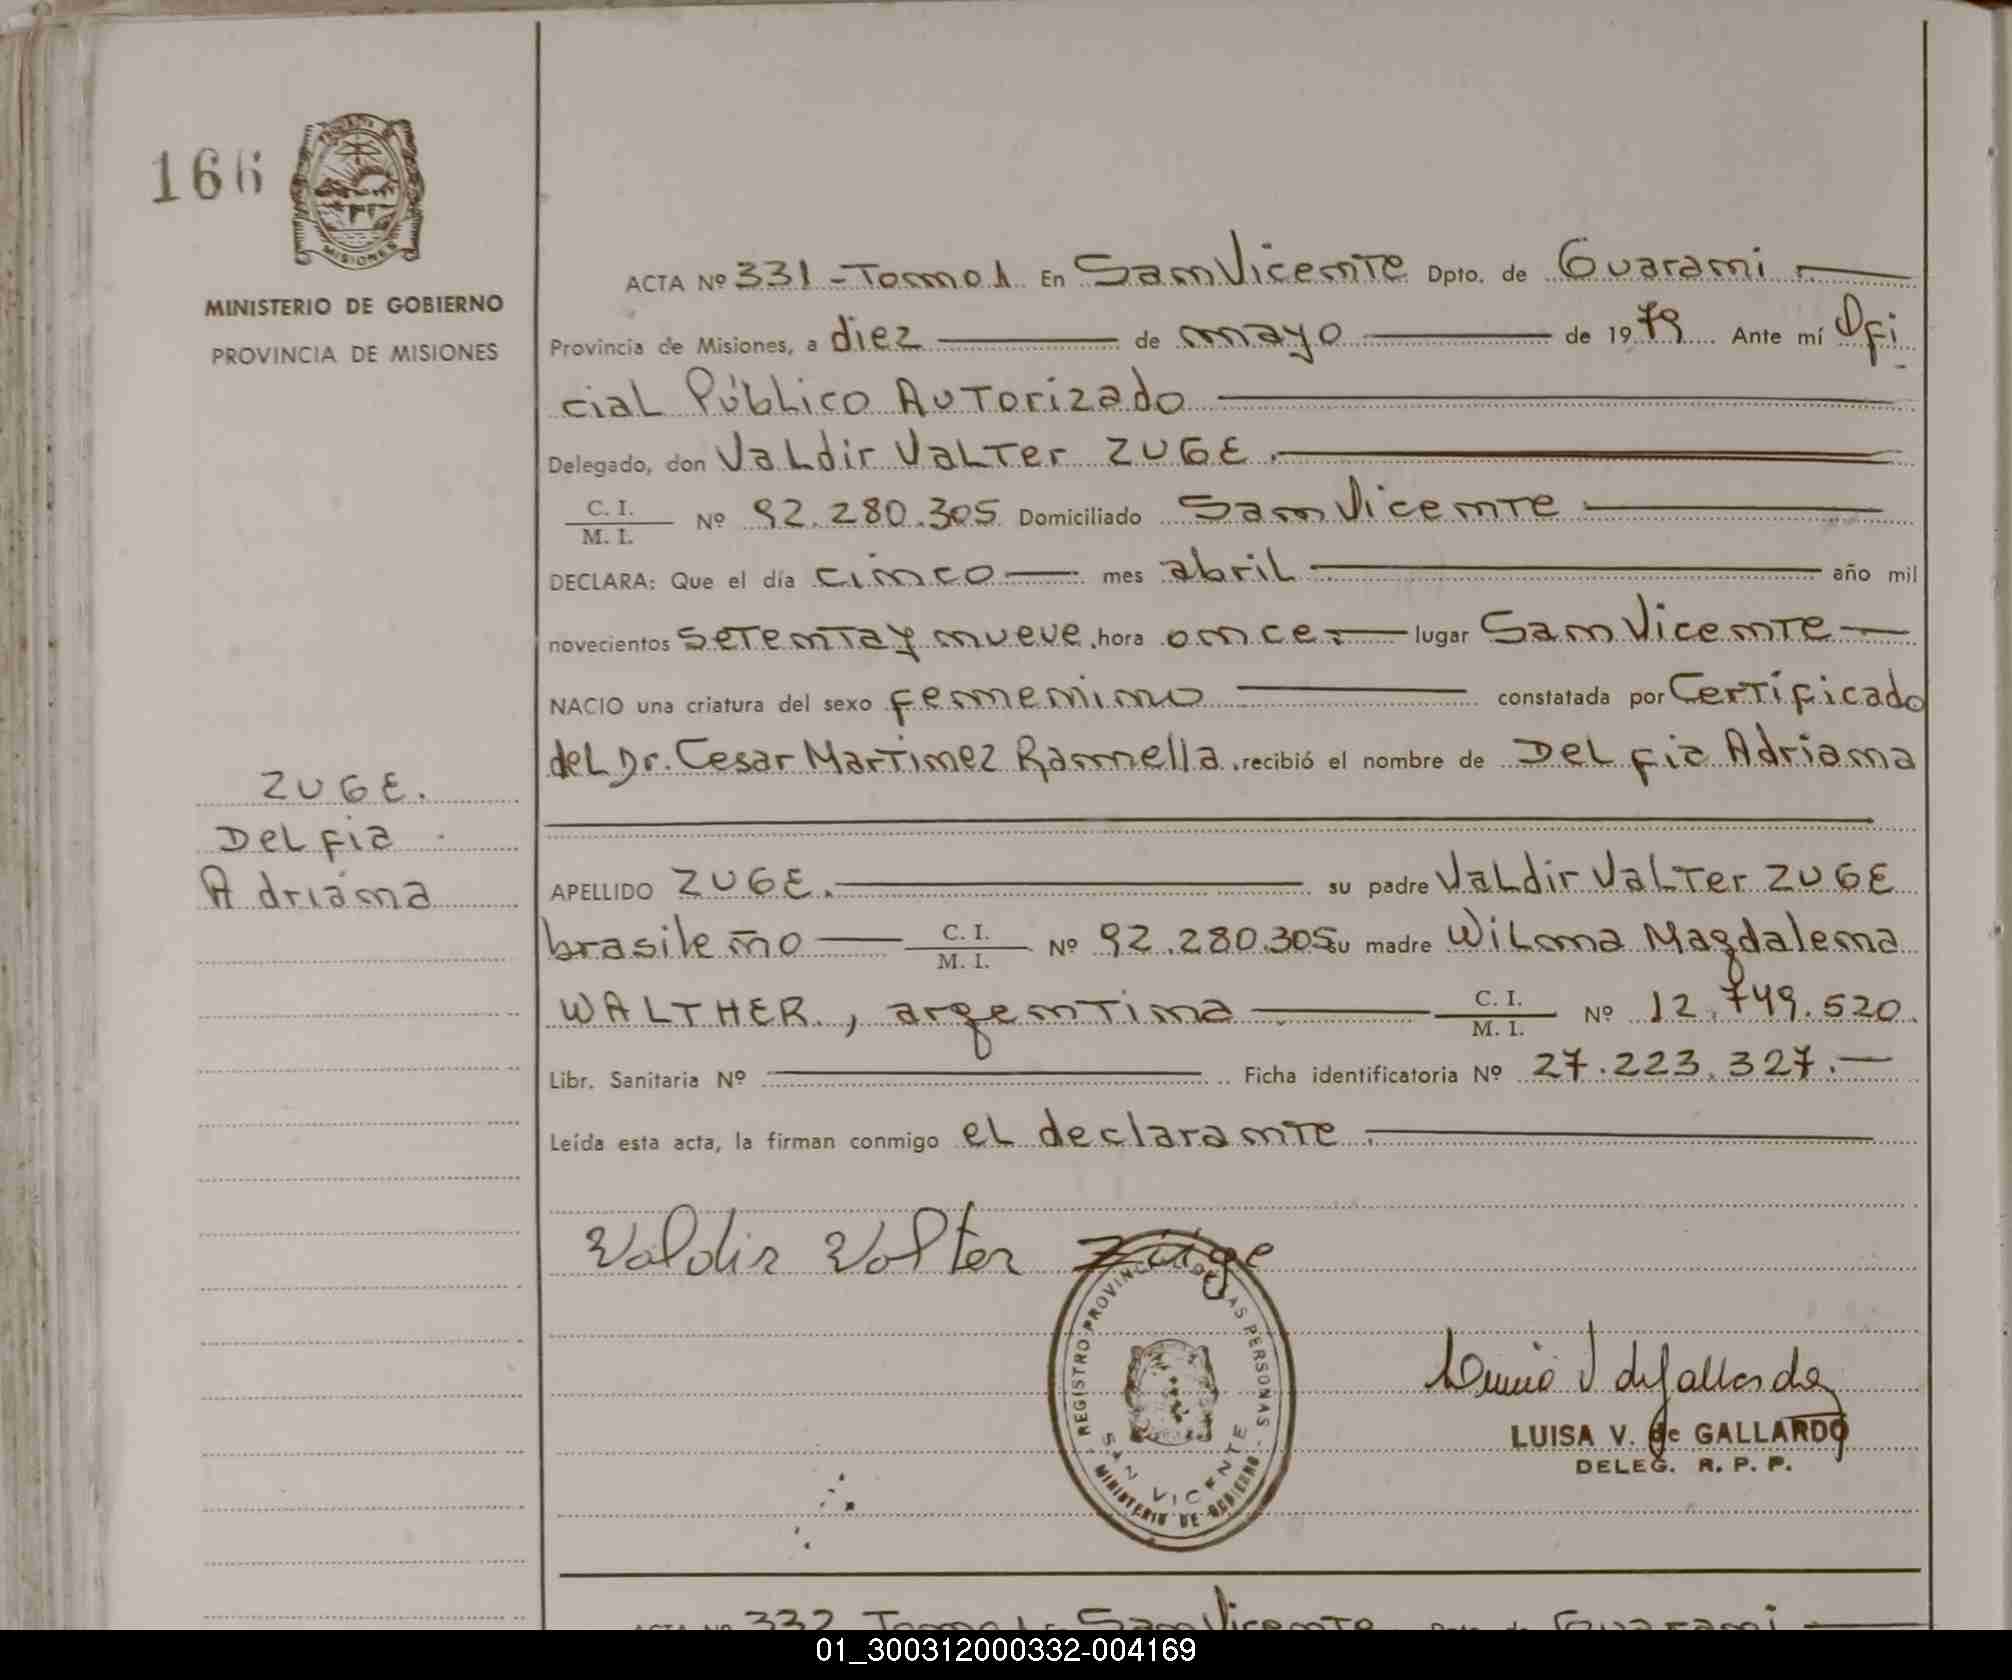 166
MISIONES
MINISTERIO DE GOBIERNO
PROVINCIA DE MISIONES
ZUGE.
Delfia
Adriana
ACTA Nº 331 - Tomo 1 En San Vicente Dpto. de Guarani
Provincia de Misiones, a diez de mayo de 1979 Ante mí Ofi
cial Público Autorizado
Delegado, don Valdir Valter ZUGE.
C. I.
M. I. Nº 92.280.305 Domiciliado San Vicente
DECLARA: Que el día cinco mes abril año mil
novecientos setenta y nueve, hora once. lugar San Vicente
NACIO una criatura del sexo femenino constatada por Certificado
del Dr. Cesar Martinez Ramella, recibió el nombre de Delfia Adriana
APELLIDO ZUGE. su padre Valdir Valter ZUGE
brasileño C. I.
M. I. Nº 92.280.305 su madre Wilma Magdalena
WALTHER, argentina C. I.
M. I. Nº 12.749.520.
Libr. Sanitaria Nº Ficha identificatoria Nº 27.223.327.
Leída esta acta, la firman conmigo el declarante
Valdir Valter Züge
REGISTRO PROVINCIAL DE LAS PERSONAS
SAN VICENTE
MINISTERIO DE GOBIERNO
LUISA V. de GALLARDO
DELEG. R. P. P.
ACTA Nº 332 Tomo 1 En San Vicente Dpto. de Guarani
01_300312000332-004169